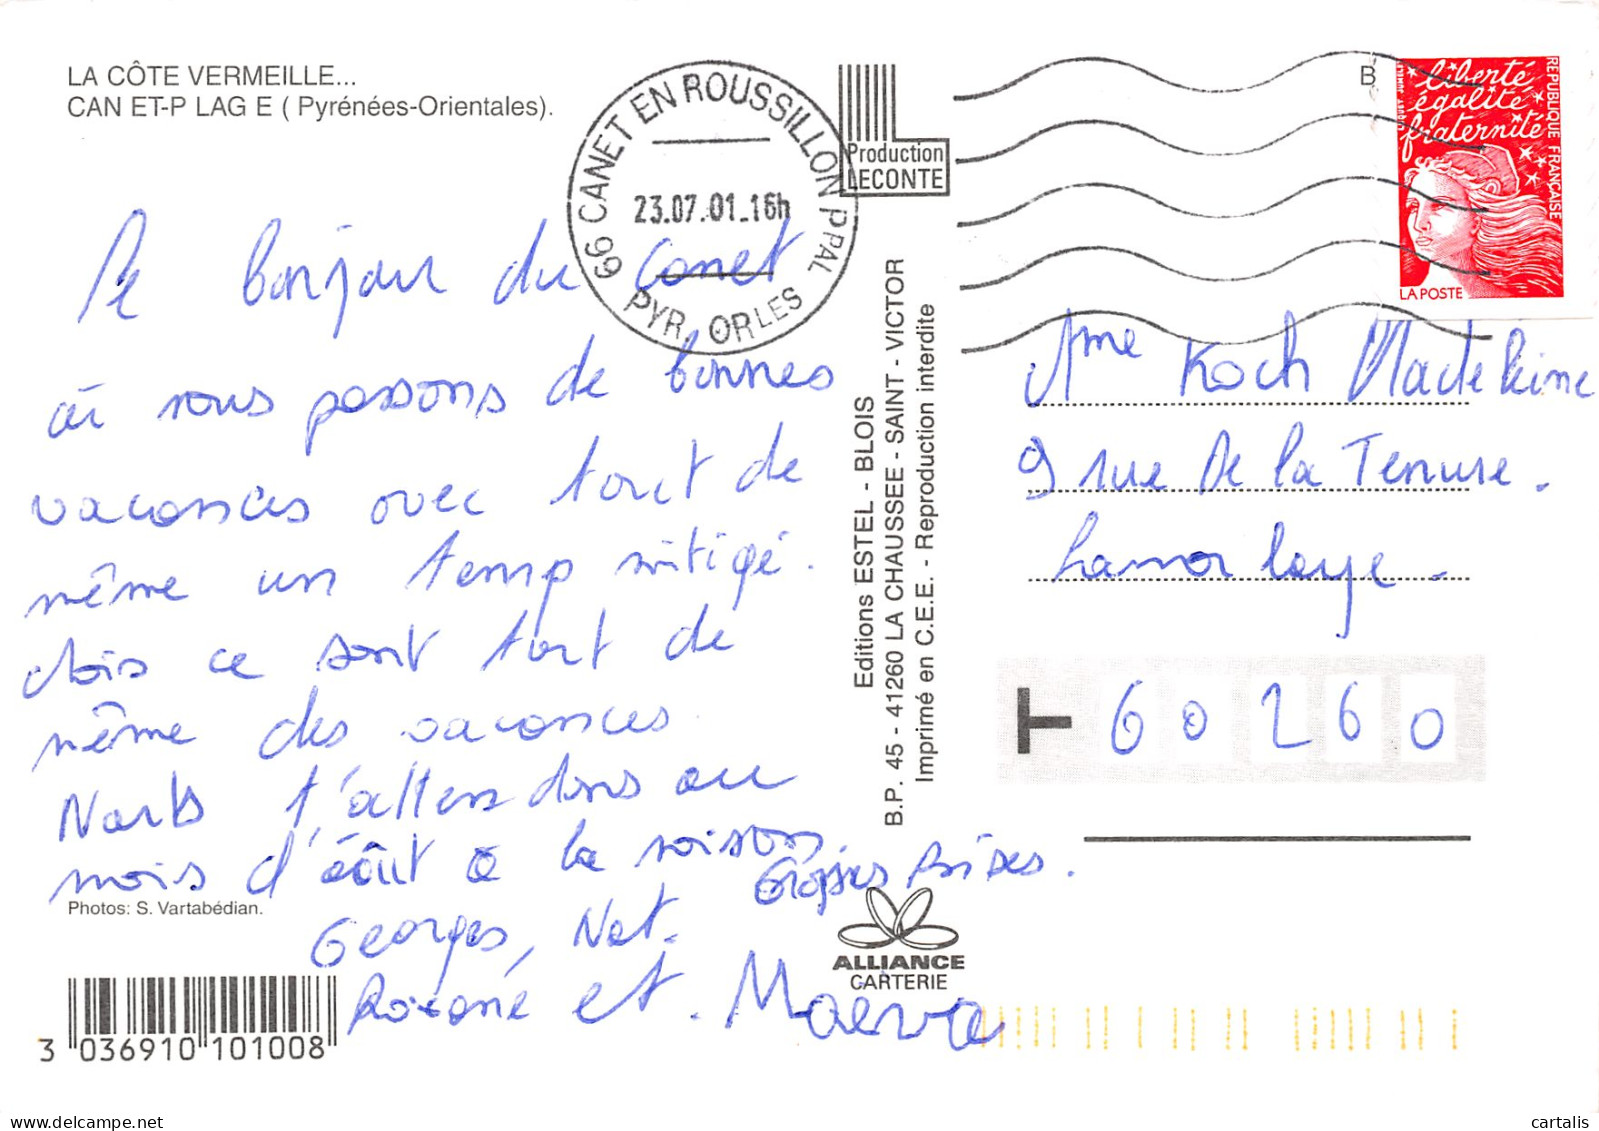 LA CÔTE VERMEILLE...
CAN ET-P LAG E ( Pyrénées-Orientales).
66 CANET EN ROUSSILLON PPAL
23.07.01.16h
PYR. ORLES
Production
LECONTE
B
liberté
égalité
fraternité
REPUBLIQUE FRANÇAISE
LA POSTE
Le bonjour du Canet
où nous passons de bonnes
vacances avec tout de
même un temp mitigé.
Mais ce sont tout de
même des vacances
Nous t'attendons au
mois d'août à la maison.
Grosses bises.
Georges, Nat.
Roxane et. Maeva
Editions ESTEL - BLOIS
B.P. 45 - 41260 LA CHAUSSEE - SAINT - VICTOR
Imprimé en C.E.E. - Reproduction interdite
Mme Koch Madeleine
9 rue de la Tenure.
Lamorlaye.
60260
Photos: S. Vartabédian.
ALLIANCE
CARTERIE
3 036910 101008
cartalis